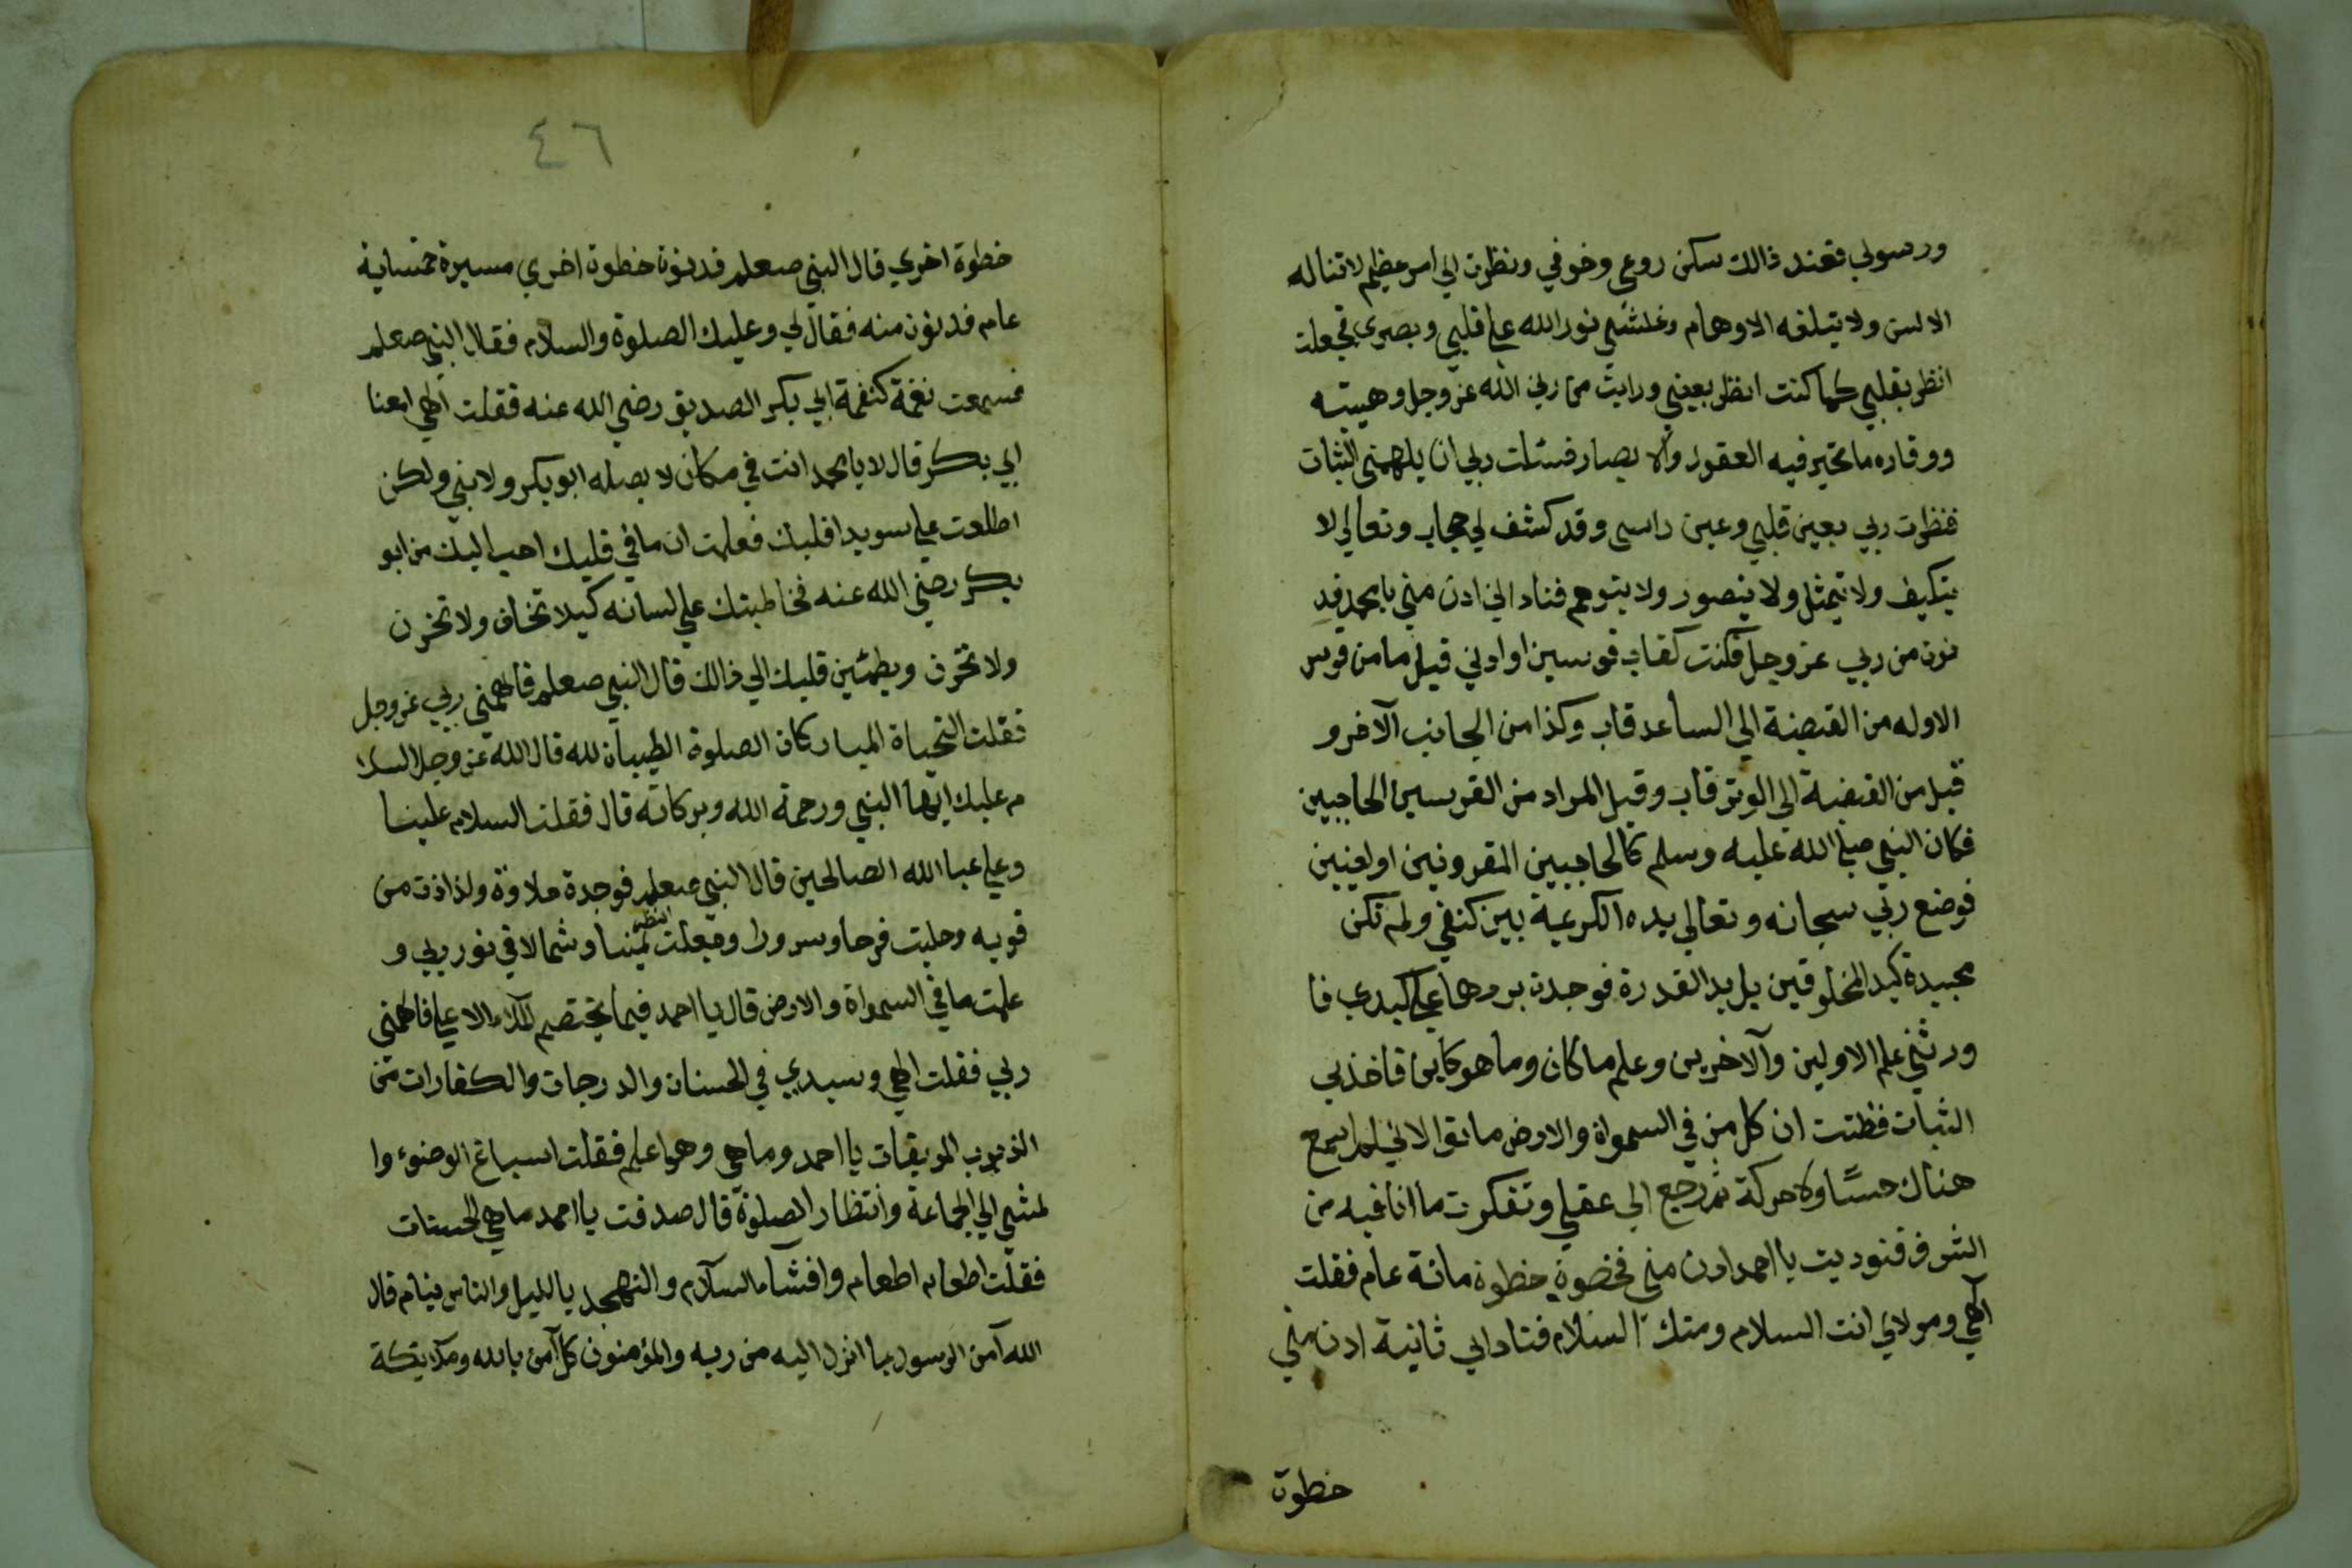 ورسولي فعند ذالك سكن روعي وخوفي ونظرت الي امر عظيم لا تناله
الالسن ولا يتبلغه الاوهام وغلشني نور الله علي قلبي وبصري فجعلت
انظر بقلبي كما كنت انظر بعيني ورايت من ربي الله عز وجل وهيبته
ووقاره ما تحير فيه العقول والابصار فسئلت ربي ان يلهمني الثبات
فنظرت ربي بعين قلبي وعين راسي وقد كشف لي حجاب وتعالي لا
يتكيف ولا يتمثل ولا يتصور ولا يتوهم فناداني ادن مني يا محمد فد
نوت من ربي عز وجل فكنت كقاب قوسين او ادني قيل ما من قوس
الاوله من القبضة الي الساعد قاب وكذا من الجانب الآخر و
قيل من القبضة الي الوتر قاب وقيل المراد من القوسين الحاجبين
فكان النبي صلي الله عليه وسلم كالحاجبين المقرونين او لعينين
فوضع ربي سبحانه وتعالي يده الكريمة بين كتفي ولم تكن
محبيدة كيد المخلوقين بل يد القدرة فوجدت بردها علي كبدي فا
ورثني علم الاولين والآخرين وعلم ما كان وما هو كاين فاخذني
الثبات فظننت ان كل من في السمواة والارض ماتوا لاني لم اسمع
هناك حسًا ولا حركة ثم رجع الي عقلي وتفكرت ما انا فيه من
الشرف فنوديت يا احمد ادن مني فخصوة خطوة مائة عام فقلت
آلهي ومولاي انت السلام ومنك السلام فناداني ثانية ادن مني
خطوة
٤٦
خطوة اخري قال النبي صعلم فدنوت خطوة اخري مسيرة خمسماية
عام فدنوت منه فقال لي وعليك الصلوة والسلام فقال النبي صعلم
فسمعت نغمة كنغمة ابي بكر الصديق رضي الله عنه فقلت الهي امعنا
ابي بكر قال لا يا محمد انت في مكان لا يصله ابو بكر ولا نبي ولكن
اطلعت علي سويدا قلبك فعلمت ان ما في قلبك احب اليك من ابو
بكر رضي الله عنه فخاطبتك علي لسانه كيلا تخاف ولا تخزن
ولا تحزن ويطمئين قلبك الي ذالك قال النبي صعلم فالهمني ربي عز وجل
فقلت التحياة المباركات الصلوة الطيبات لله قال الله عز وجل السلا
م عليك ايها النبي ورحمة الله وبركاته قال فقلت السلام علينا
وعلي عبا الله الصالحين قال النبي صعلم فوجدة حلاوة ولذاذت من
قوبه وحليت فرحا وسرورا وجعلت انظر يمينا وشمالا في نور ربي و
علمت ما في السمواة والارض قال يا احمد فيما يختصم الملاء الاعلي فالهمني
ربي فقلت الهي وسيدي في الحسنات والدرجات والكفارات من
الذنوب الموبقات يا احمد وما هي وهو اعلم فقلت اسباغ الوضوء وا
لمشي الي الجماعة وانتظار الصلوة قال صدقت يا احمد ما هي الحسنات
فقلت اطعام اطعام وافشاء السلام والتهجد يا لليل والناس نيام قال
الله آمن الرسول بما انزل اليه من ربه والمؤمنون كل آمن بالله وملايكة